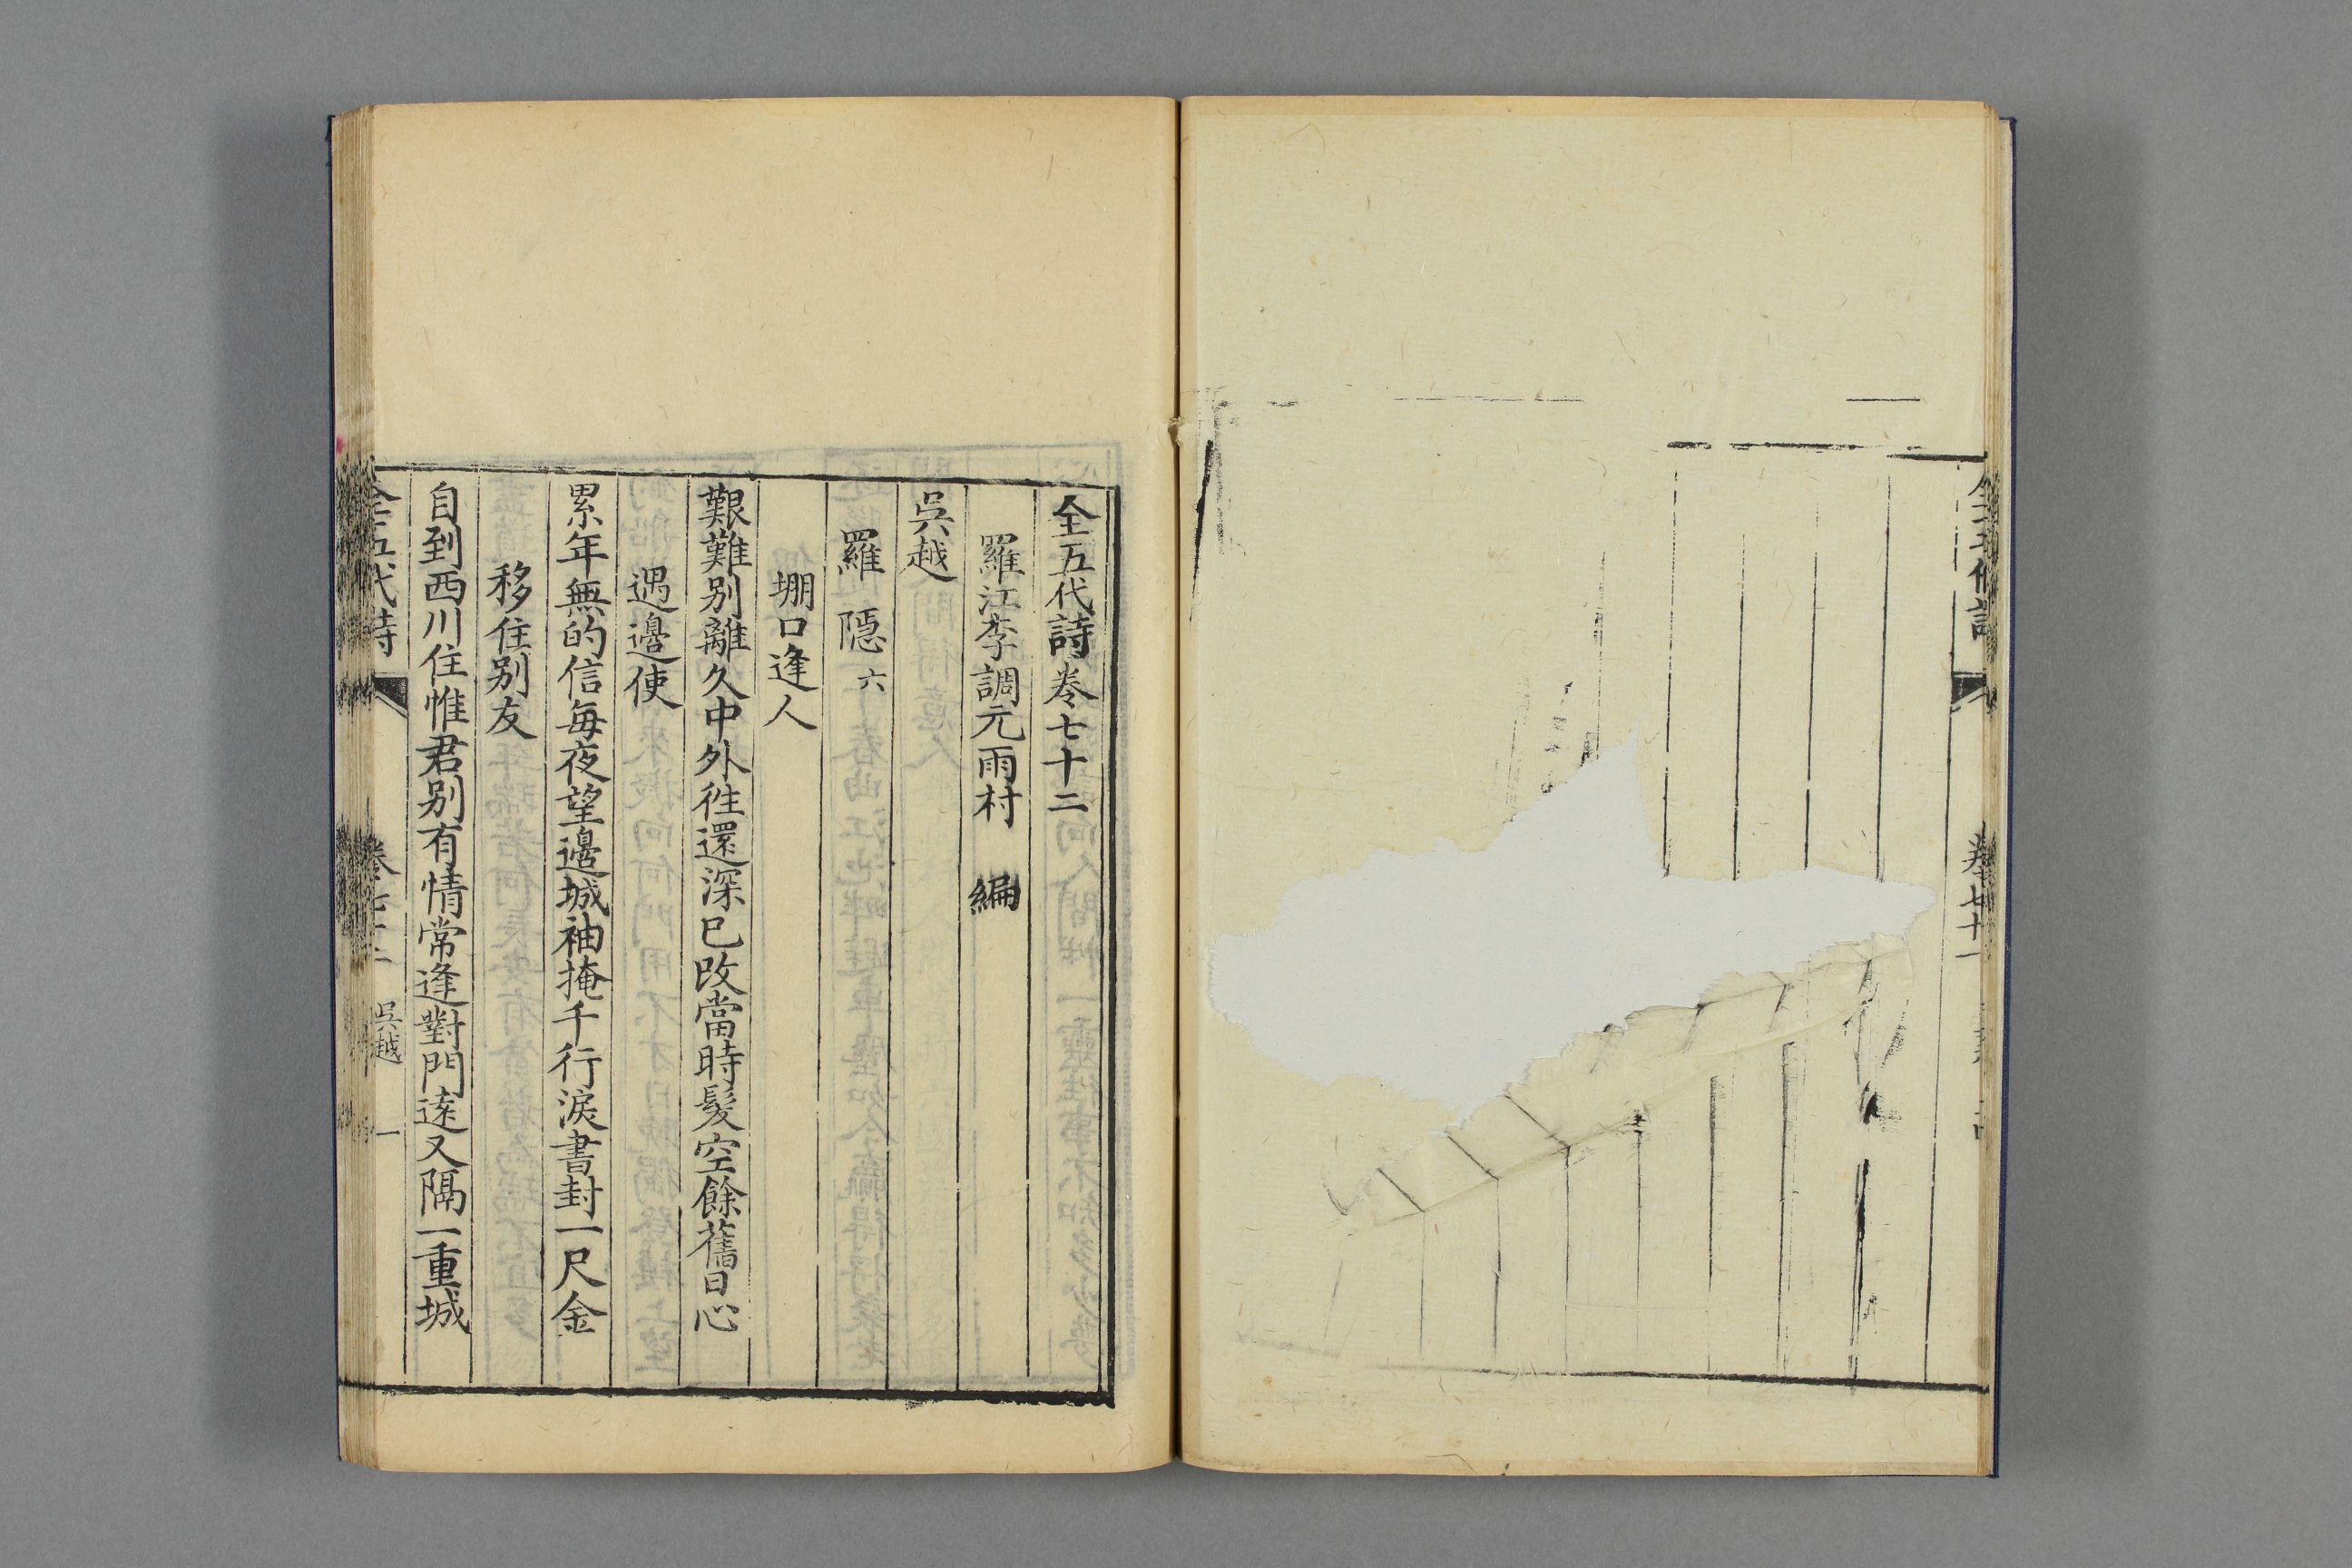 全五代詩卷七十二
羅江李調元雨村 編
吳越
羅 隱 六
堋口逢人
艱難別離久中外徃還深已改當時髮空餘舊日心
遇邊使
累年無的信每夜望邊城袖掩千行淚書封一尺金
移住別友
自到西川住惟君別有情常逢對門遠又隔一重城
全五代詩 卷七十二 吳越 一
卷七十一